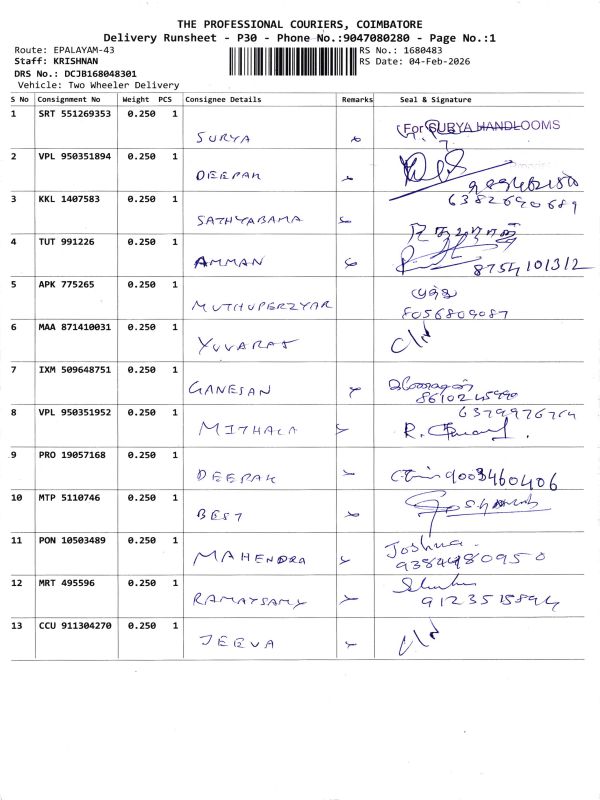 THE PROFESSIONAL COURIERS, COIMBATORE
Delivery Runsheet - P30 - Phone No.:9047080280 - Page No.:1
Route: EPALAYAM-43
RS No.: 1680483
Staff: KRISHNAN
RS Date: 04-Feb-2026
DRS No.: DCJB168048301
Vehicle: Two Wheeler Delivery
S No Consignment No Weight PCS Consignee Details Remarks Seal & Signature
1 SRT 551269353 0.250 1
For SURYA HANDLOOMS
SURYA
2 VPL 950351894 0.250 1
DEEPAK
3 KKL 1407583 0.250 1
6382690689
SATHYABAMA
4 TUT 991226 0.250 1
AMMAN
8754101312
5 APK 775265 0.250 1
முத்து
MUTHUPERIYAR
8056809087
6 MAA 871410031 0.250 1
YUVARAJ
7 IXM 509648751 0.250 1
GANESAN
8 VPL 950351952 0.250 1
MITHALA
9 PRO 19057168 0.250 1
DEEPAK
9003460406
10 MTP 5110746 0.250 1
BEST
11 PON 10503489 0.250 1
Joshua.
MAHENDRA
9384480950
12 MRT 495596 0.250 1
RAMAYSAMY
13 CCU 911304270 0.250 1
JEEVA